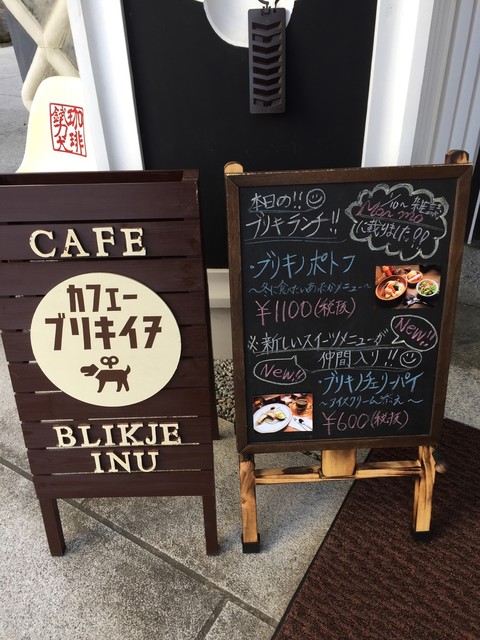 珈琲
錻力犬
CAFE
カフェー
ブリキイヌ
BLIKJE
INU
本日の!!
ブリキランチ!!
1/10〜 雑誌
Non-no
に載りました!!
・ブリキノポトフ
〜冬に食べたいあったかメニュー〜
¥1100(税抜)
※新しいスイーツメニューが
New!!
仲間入り!!
New!!
・ブリキノチェリーパイ
〜アイスクリームぞえ〜
¥600(税抜)